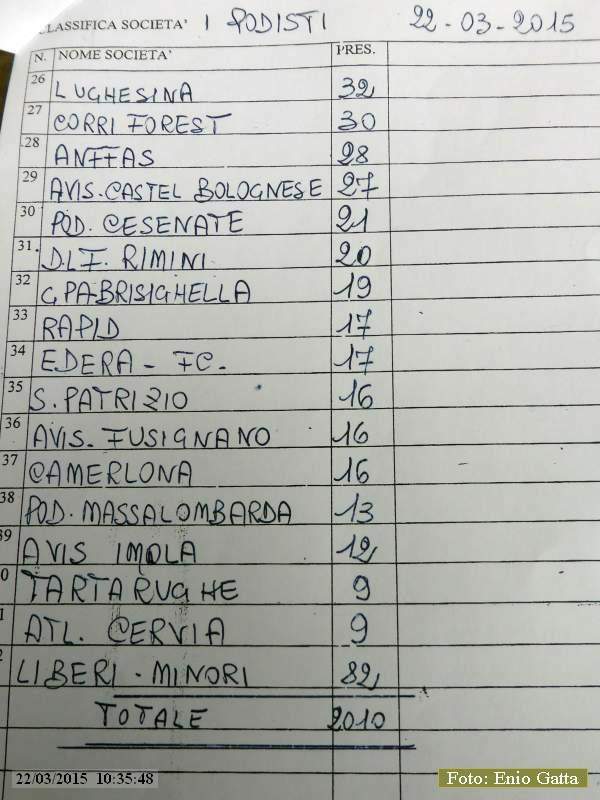 CLASSIFICA SOCIETA' I PODISTI 22-03-2015
N. NOME SOCIETA' PRES.
26 LUGHESINA 32
27 CORRI FOREST 30
28 ANFFAS 28
29 AVIS.CASTEL BOLOGNESE 27
30 POD. CESENATE 21
31. D.L.F. RIMINI 20
32 G.PA-BRISIGHELLA 19
33 RAPID 17
34 EDERA - FC. 17
35 S. PATRIZIO 16
36 AVIS. FUSIGNANO 16
37 CAMERLONA 16
38 POD. MASSALOMBARDA 13
39 AVIS IMOLA 12
0 TARTARUGHE 9
1 ATL. CERVIA 9
2 LIBERI - MINORI 82
TOTALE 2010
22/03/2015 10:35:48
Foto: Enio Gatta